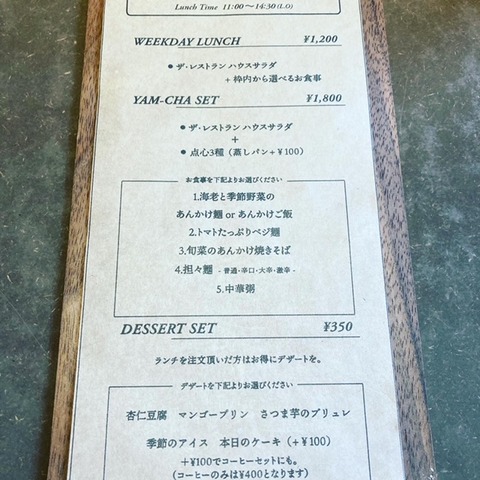 Lunch Time 11:00〜14:30(L.O)
WEEKDAY LUNCH ¥1,200
● ザ・レストラン ハウスサラダ
+ 枠内から選べるお食事
YAM-CHA SET ¥1,800
● ザ・レストラン ハウスサラダ
+
● 点心3種（蒸しパン+¥100）
お食事を下記よりお選びください
1.海老と季節野菜の
あんかけ麺 or あんかけご飯
2.トマトたっぷりベジ麺
3.旬菜のあんかけ焼きそば
4.担々麺 - 普通・辛口・大辛・激辛 -
5.中華粥
DESSERT SET ¥350
ランチを注文頂いた方はお得にデザートを。
デザートを下記よりお選びください
杏仁豆腐 マンゴープリン さつま芋のブリュレ
季節のアイス 本日のケーキ（+¥100）
+¥100でコーヒーセットにも。
(コーヒーのみは¥400となります)